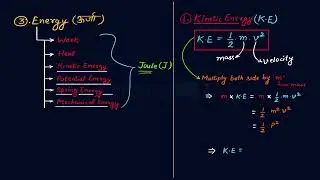 ③. Energy (ऊर्जा)
→ Work
→ Heat
→ Kinetic Energy
→ Potential Energy
→ Spring Energy
→ Mechanical Energy
Joule (J)
①. Kinetic Energy (K·E)
K·E = 1/2 m·v²
mass velocity
Multiply both side by 'm'
⇒ m × K·E = m × 1/2 · m·v²
= 1/2 · m²·v²
= 1/2 · p²
⇒ K·E =